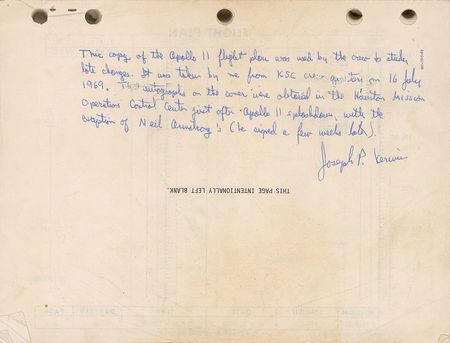 This copy of the Apollo 11 flight plan was used by the crew to study
late changes. It was taken by me from KSC crew quarters on 16 July
1969. The autographs on the cover were obtained in the Houston Mission
Operations Control Center just after Apollo 11 splashdown, with the
exception of Neil Armstrong's (he signed a few weeks later).
Joseph P. Kerwin
THIS PAGE INTENTIONALLY LEFT BLANK.
FLIGHT PLAN